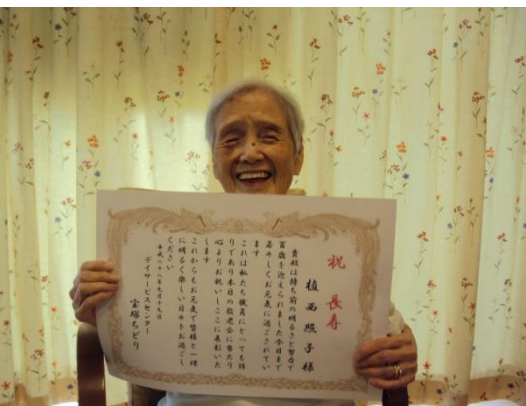 祝 長寿
植西照子様
貴殿は持ち前の明るさと努力で
百歳を迎えられました今日まで
若々しくお元気に過ごされてい
ます
これは私たち職員にとっても誇
りであり本日の敬老会に当たり
心よりお祝いしここに表彰いた
します
これからもお元気で皆様と一緒
に明るく楽しい日々をお過ごし
ください
平成二十八年九月十九日
デイサービスセンター
宝塚ちどり